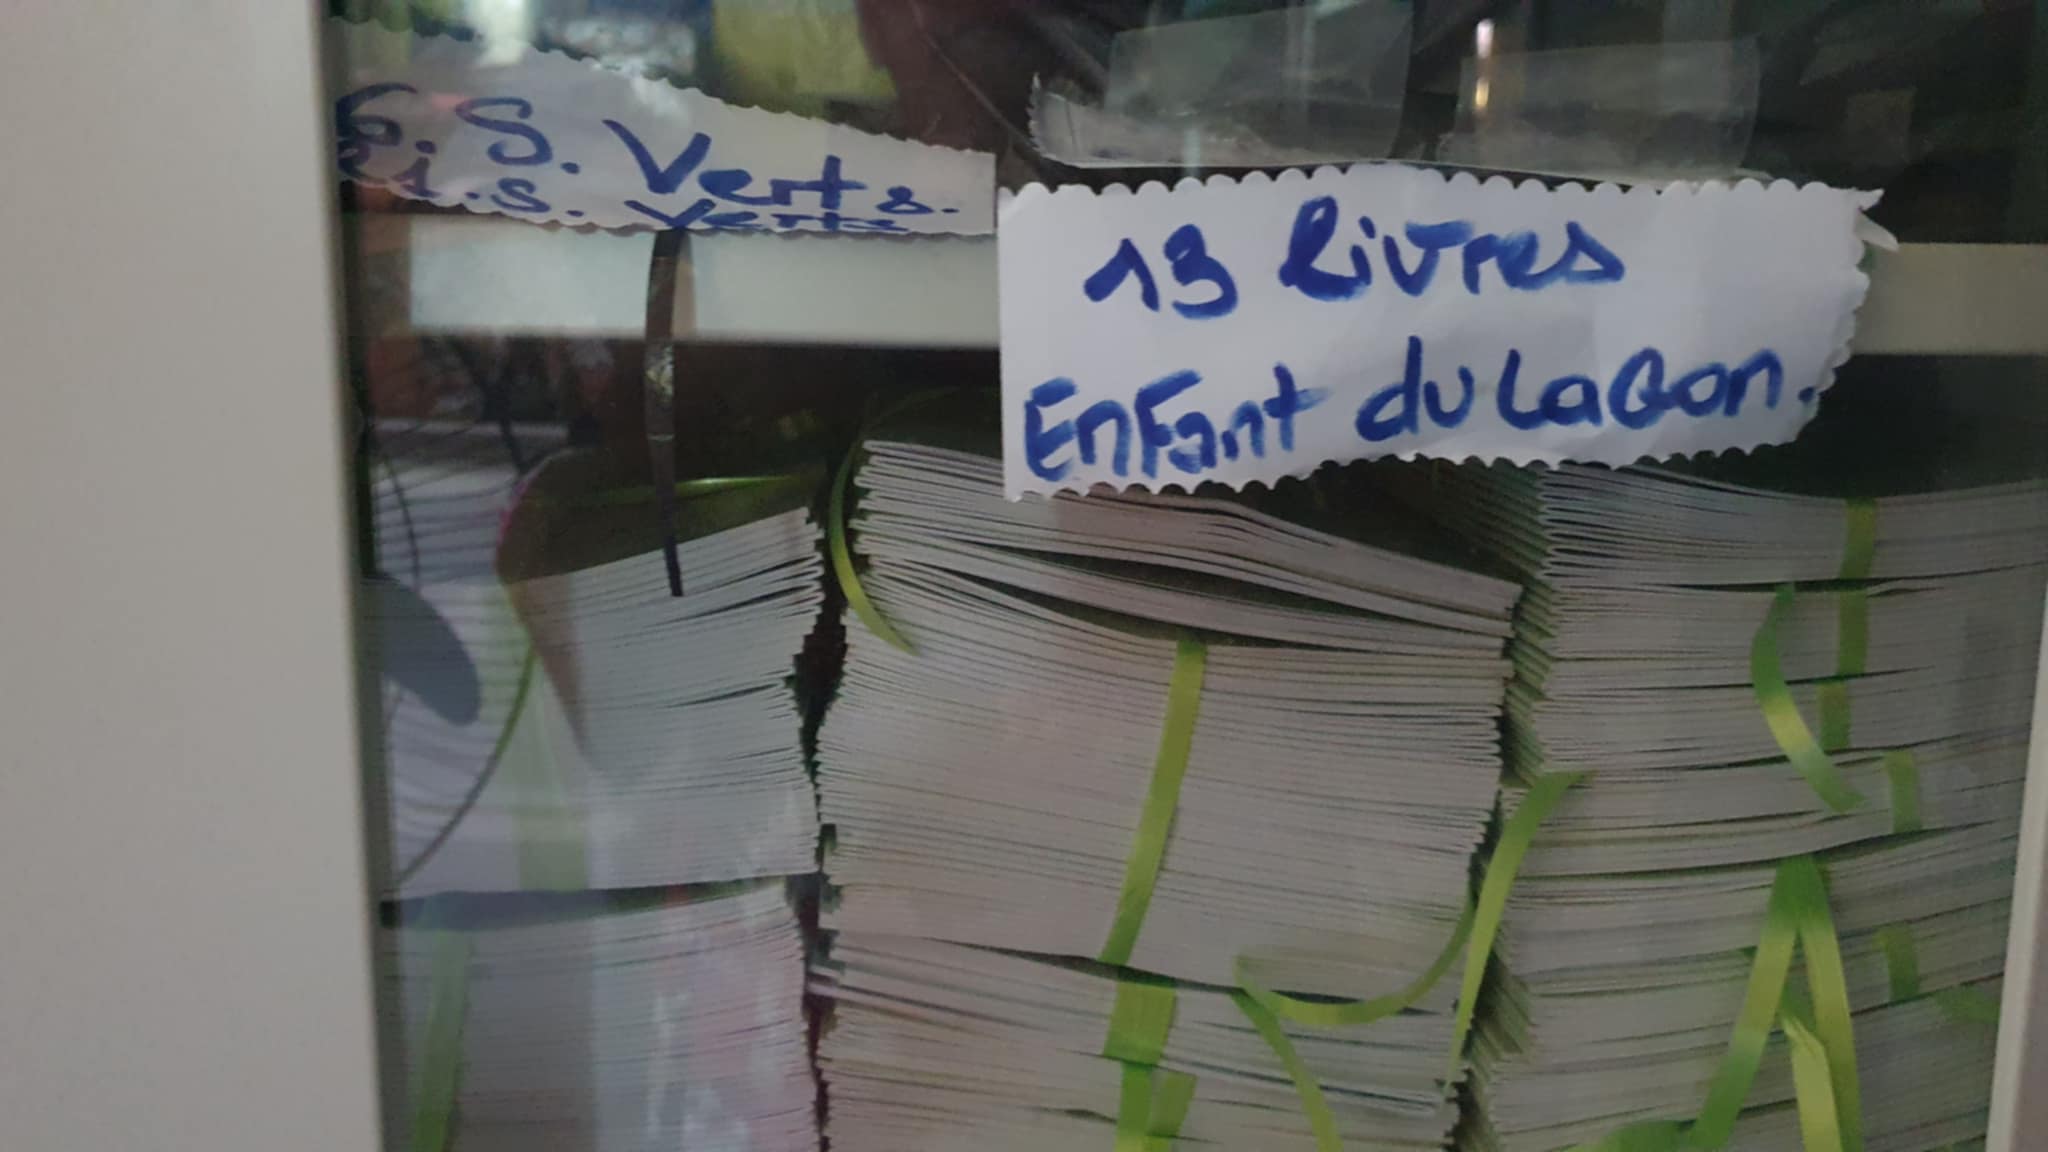 E.S. Verts.
13 livres
EnFant du Lagon.